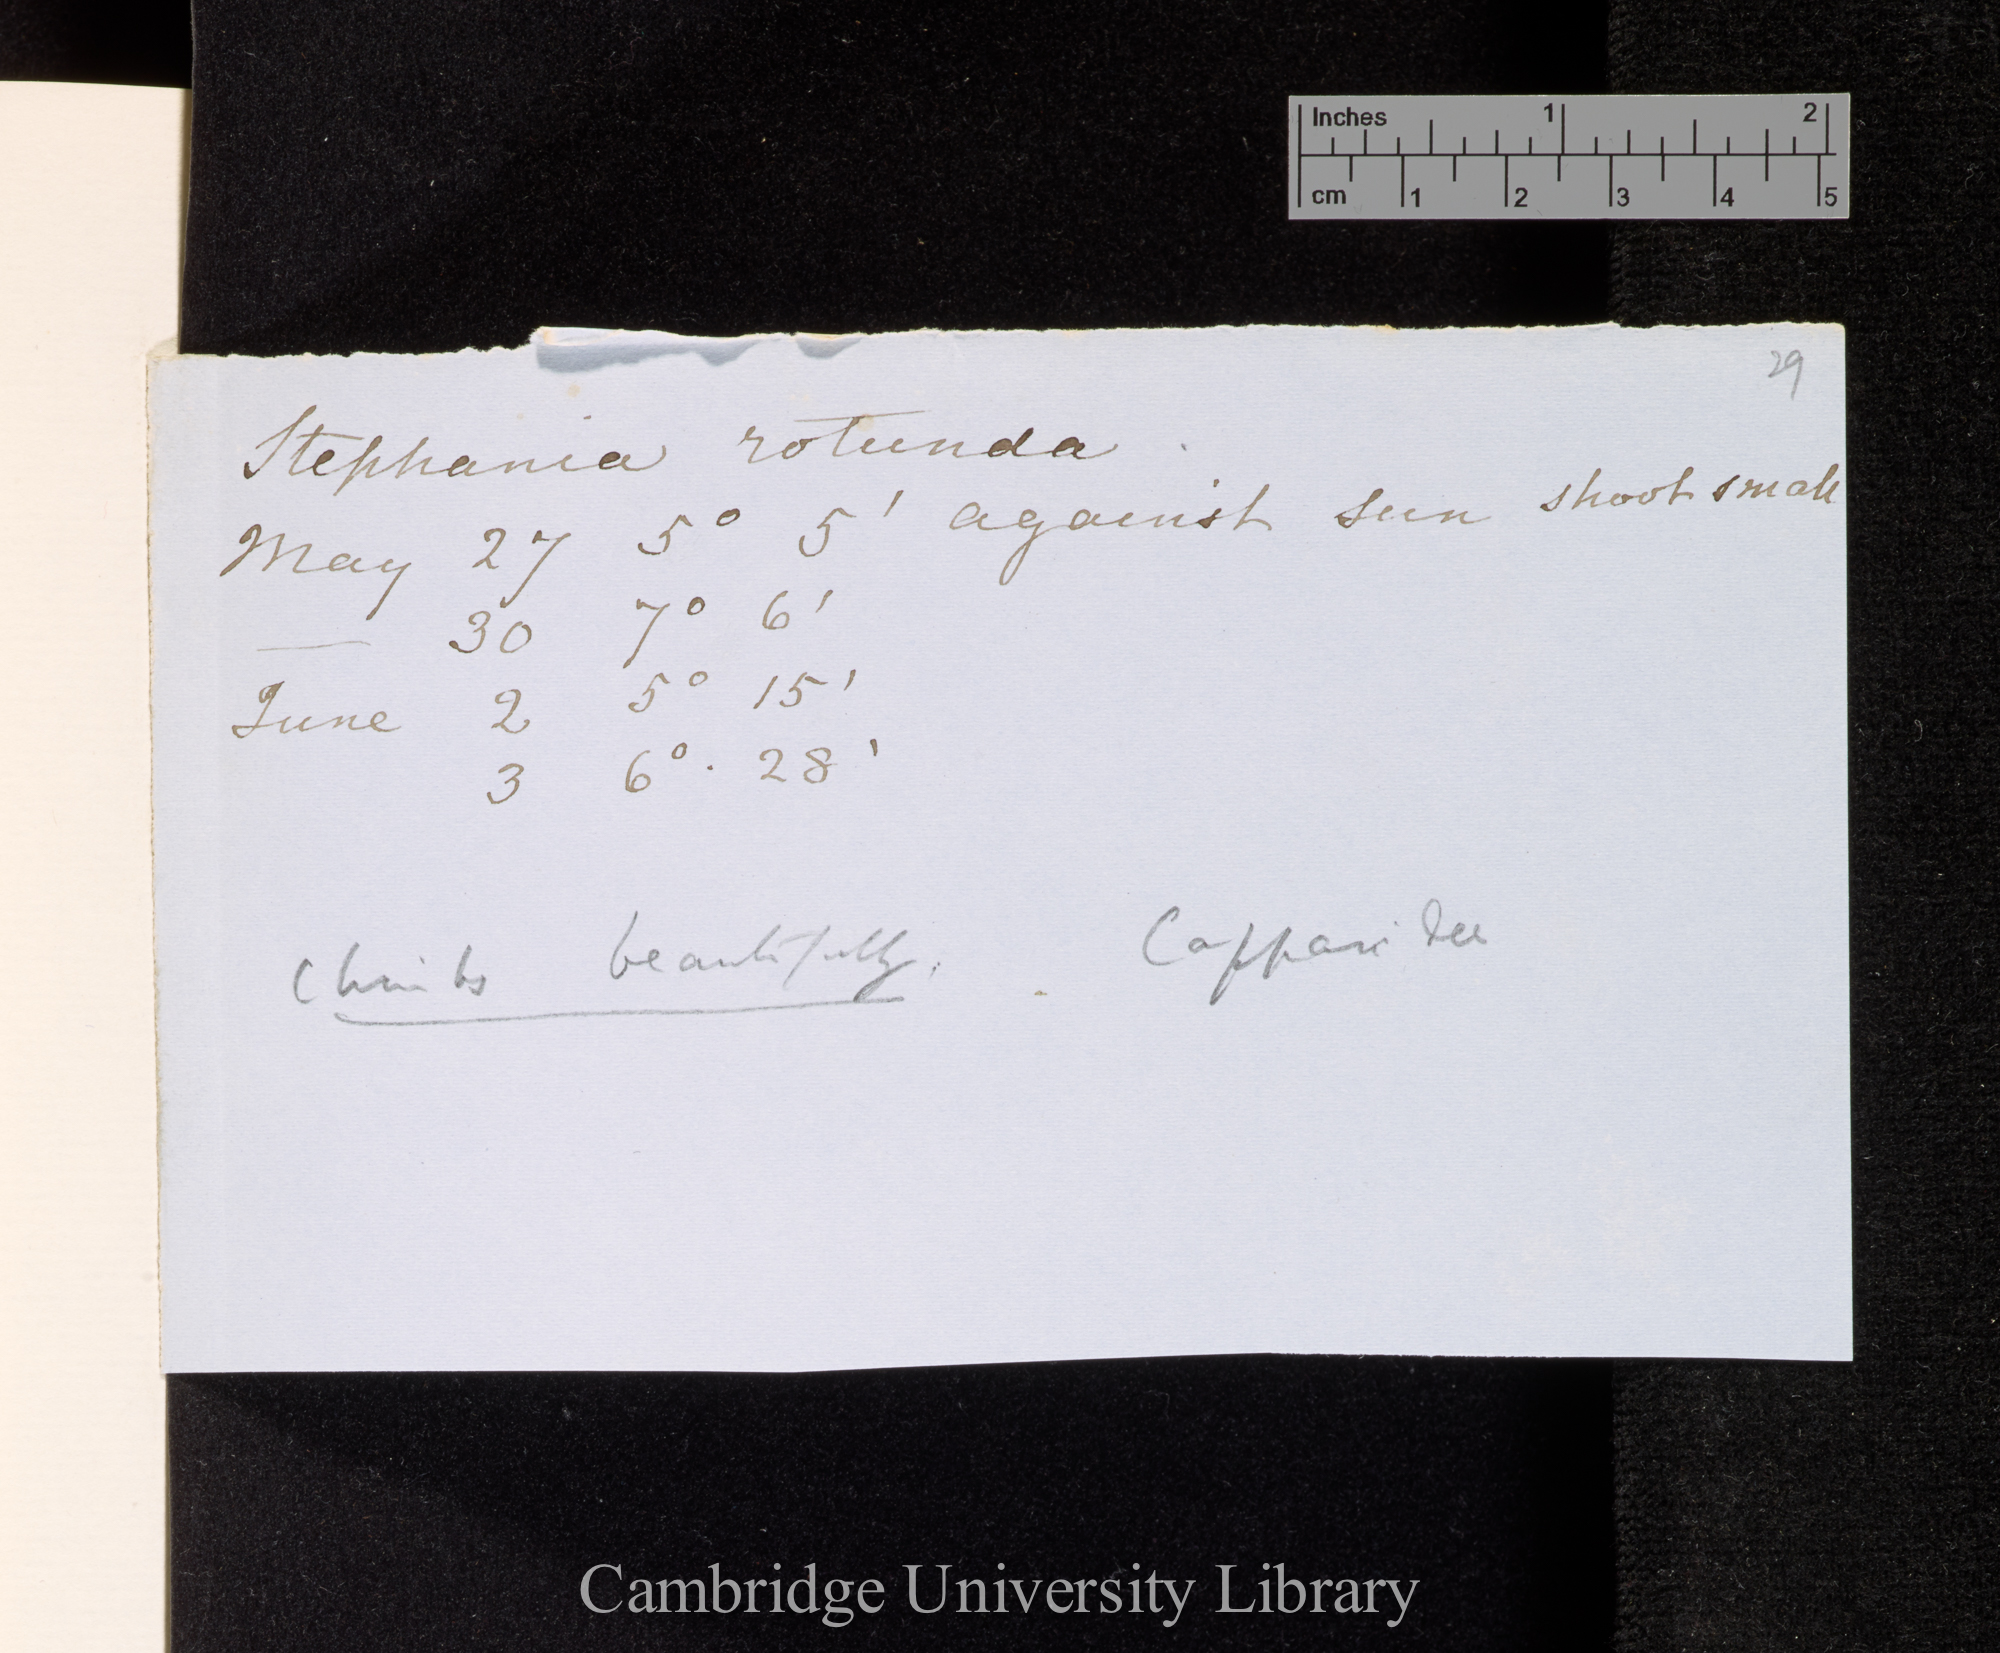 Inches 1 2
cm 1 2 3 4 5
29
Stephania rotunda.
May 27 5° 5' against sun shoot small
— 30 7° 6'
June 2 5° 15'
3 6°. 28'
Climbs beautifully. Capparidee
Cambridge University Library